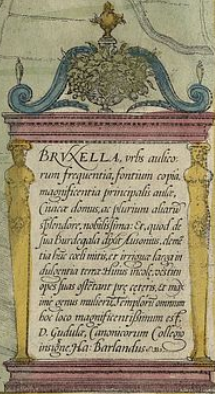 BRVXELLA, vrbs aulico-
rum frequentia, fontium copia,
magnificentia principalis aulæ,
Ciuicæ domus, ac plurium aliarū
splendore, nobilissima: Et, quod de
sua Burdegala dixit Ausonius, clemē-
tia hūc coeli mitis, et irriguæ larga in-
dulgentia terræ: Huius incolæ vestium
opes suas ostētant præ ceteris, et ma-
ximè genus mulierū. Templorū omnium
hoc loco magnificentissimum est,
D. Gudulæ, Canonicorum Collegio
insigne. Ha: Barlandus